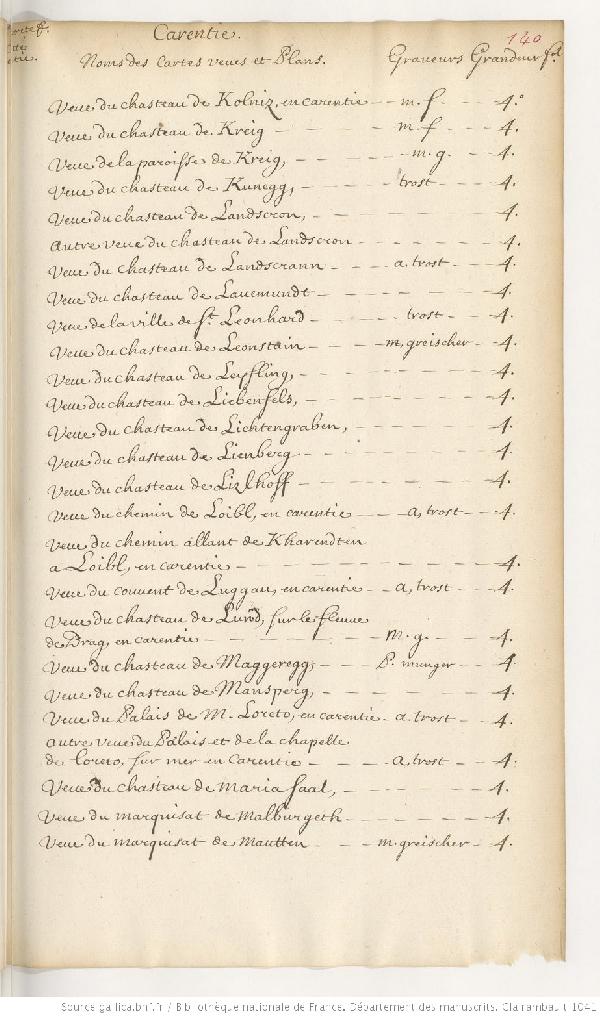 Carentie.
140
Noms des Cartes veues et Plans. Graveurs Grandeur
Veue du chasteau de Kolniz, en carentie - - m. f. - - - 4.º
Veue du chasteau de Kreig - - - - m. f. - - - 4.
Veue de la paroisse de Kreig, - - - - - m. g. - - - 4.
Veue du chasteau de Kunegg, - - - - trost - - - 4.
Veue du chasteau de Landscron, - - - - - - - 4.
autre veue du chasteau de Landscron - - - - - - 4.
Veue du chasteau de Landscrann - - - a. trost - - 4.
Veue du chasteau de Lauemundt - - - - - - - 4.
Veue de la ville de St. Leonhard - - - - trost - - - 4.
Veue du chasteau de Leonstain - - - m. greischer - - 4.
Veue du chasteau de Leyfling, - - - - - - - 4.
Veue du chasteau de Liebenfels, - - - - - - - 4.
Veue du chasteau de Lichtengraben, - - - - - - 4.
Veue du chasteau de Lienberg - - - - - - - 4.
Veue du chasteau de Lizlhoff - - - - - - - 4.
Veue du chemin de Loibl, en carentie - - a. trost - - 4.
Veue du chemin allant de Kharendten
a Loibl, en carentie - - - - - - - - - 4.
Veue du couvent de Luggau, en carentie - - a. trost - - 4.
Veue du chasteau de Lund, sur le fleuve
de Drag, en carentie - - - - - - m. g. - - - 4.
Veue du chasteau de Maggeregg, - - - P. munger - - 4.
Veue du chasteau de Mansperg, - - - - - - - 4.
Veue du Palais de M. Loreto, en carentie - a. trost - - 4.
autre veue du Palais et de la chapelle
de loreto, sur mer en Carentie - - - - a. trost - - 4.
Veue du chasteau de maria saal, - - - - - - 4.
Veue du marquisat de malburgeth - - - - - - 4.
Veue du marquisat de mautten - - - m. greischer - 4.
Source gallica.bnf.fr / Bibliothèque nationale de France. Département des manuscrits. Clairambault 1041